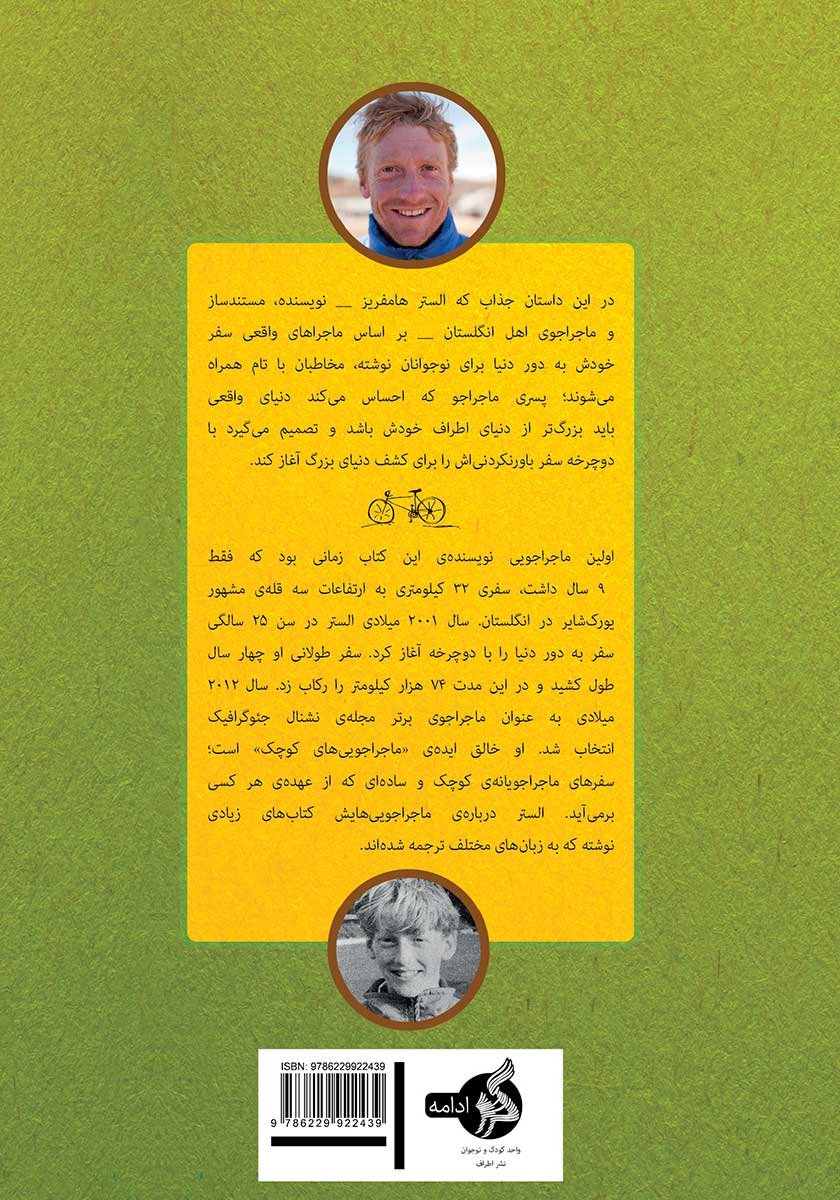 در این داستان جذاب که الستر هامفریز __ نویسنده، مستندساز
و ماجراجوی اهل انگلستان __ بر اساس ماجراهای واقعی سفر
خودش به دور دنیا برای نوجوانان نوشته، مخاطبان با تام همراه
می‌شوند؛ پسری ماجراجو که احساس می‌کند دنیای واقعی
باید بزرگ‌تر از دنیای اطراف خودش باشد و تصمیم می‌گیرد با
دوچرخه سفر باورنکردنی‌اش را برای کشف دنیای بزرگ آغاز کند.
اولین ماجراجویی نویسنده‌ی این کتاب زمانی بود که فقط
۹ سال داشت، سفری ۳۲ کیلومتری به ارتفاعات سه قله‌ی مشهور
یورک‌شایر در انگلستان. سال ۲۰۰۱ میلادی الستر در سن ۲۵ سالگی
سفر به دور دنیا را با دوچرخه آغاز کرد. سفر طولانی او چهار سال
طول کشید و در این مدت ۷۴ هزار کیلومتر را رکاب زد. سال ۲۰۱۲
میلادی به عنوان ماجراجوی برتر مجله‌ی نشنال جئوگرافیک
انتخاب شد. او خالق ایده‌ی «ماجراجویی‌های کوچک» است؛
سفرهای ماجراجویانه‌ی کوچک و ساده‌ای که از عهده‌ی هر کسی
برمی‌آید. الستر درباره‌ی ماجراجویی‌هایش کتاب‌های زیادی
نوشته که به زبان‌های مختلف ترجمه شده‌اند.
ISBN: 9786229922439
9 786229 922439
ادامه
واحد کودک و نوجوان
نشر اطراف